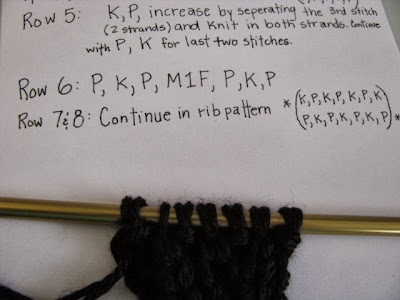 Row 5: K, P, increase by seperating the 3rd stitch
(2 strands) and knit in both strands. Continue
with P, K for last two stitches.
Row 6: P, K, P, M1F, P, K, P
Row 7&8: Continue in rib pattern *(K, P, K, P, K, P, K)
(P, K, P, K, P, K, P)*